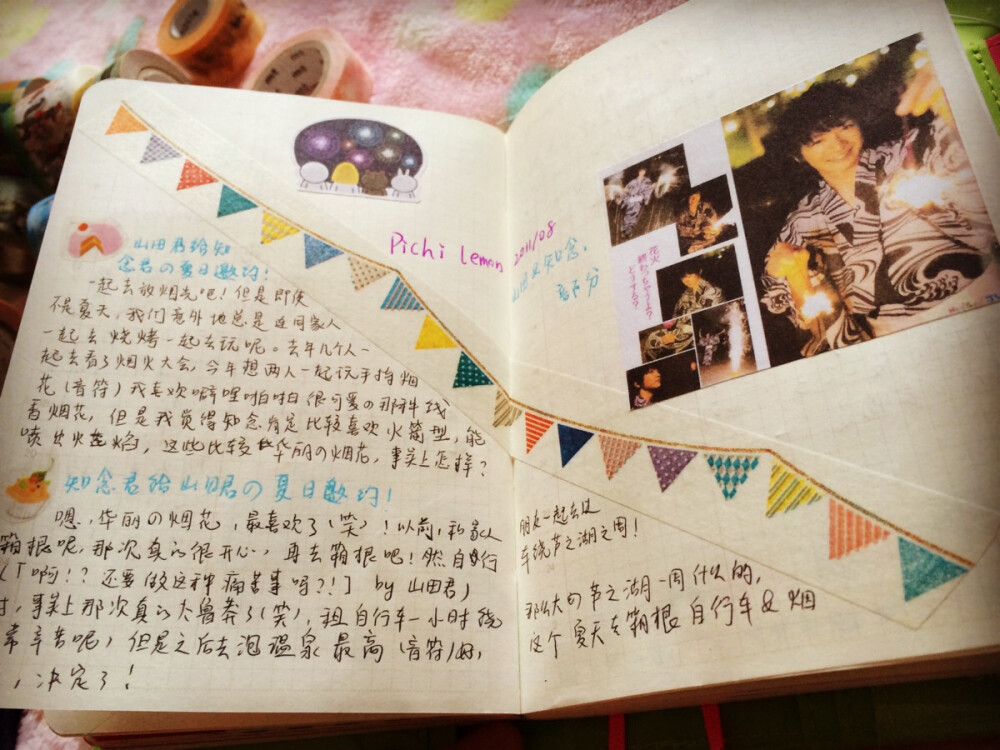 山田君给知
念君の夏日邀约!
一起去放烟花吧!但是即使
不是夏天,我们意外地总是连同家人
一起去烧烤一起去玩呢。去年几个人一
起去看了烟火大会,今年想两人一起玩手持烟
花(音符)我喜欢噼哩啪啦很可爱の那种线
香烟花,但是我觉得知念肯定是比较喜欢火箭型,能
喷出火花焰,这些比较华丽の烟花,事实上怎样?
知念君给山田君の夏日邀约!
嗯,华丽の烟花,最喜欢了(笑)!以前,和家人
箱根呢,那次真的很开心,再去箱根吧!然自行
(「啊!?还要做这种痛苦事吗?!」by 山田君)
,事实上那次真的太鲁莽了(笑),租自行车一小时绕
常辛苦呢)但是之后去泡温泉最高(音符)好,
,决定了!
Pichi Lemon 2011/08
山田&知念
部分
花火
終わっちゃうよ?
どうする?
朋友一起去过
车绕芦之湖之周!
那么大の芦之湖一周什么的,
这个夏天去箱根自行车&烟